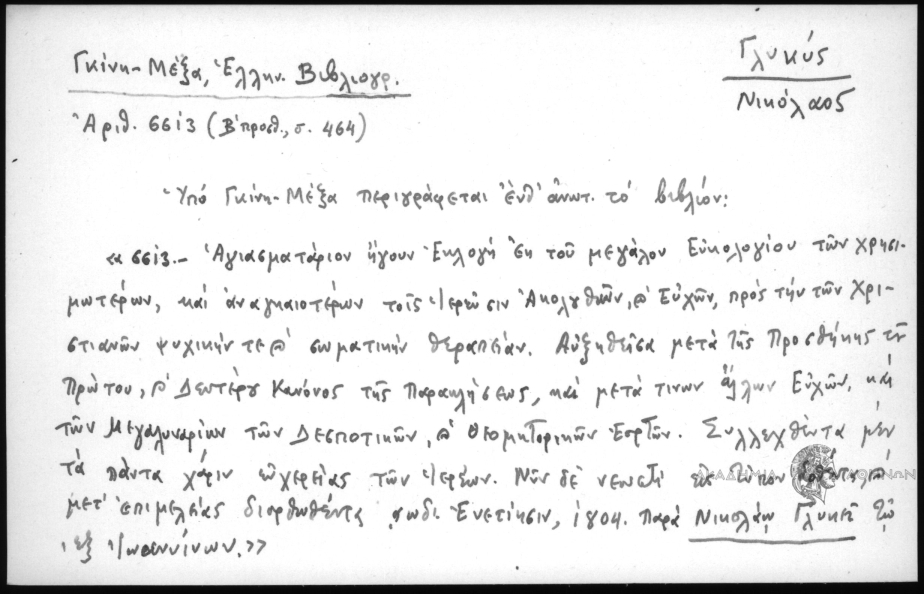 Γκίνη-Μέξα, Ἑλλην. Βιβλιογρ.
Γλυκύς
Νικόλαος
Ἀριθ. 6613 (Β' προσθ., σ. 464)
Ὑπό Γκίνη-Μέξα περιγράφεται ἐνθ' ἀνωτ. τό βιβλίον:
«6613.- Ἁγιασματάριον ἤγουν Ἐκλογή ἔκ του μεγάλου Εὐχολογίου τῶν χρησι-
μωτέρων, καί ἀναγκαιοτέρων τοῖς Ἱερεῦσιν Ἀκολουθιῶν, ϗ Εὐχῶν, πρός τήν τῶν Χρι-
στιανῶν ψυχικήν τε ϗ σωματικήν θεραπείαν. Αὐξηθεῖσα μετά τῆς Προσθήκης τȣ͂
Πρώτου, ϗ Δευτέρȣ Κανόνος τῆς Παρακλήσεως, καί μετά τινων ἄλλων Εὐχῶν, καί
τῶν Μεγαλυναρίων τῶν Δεσποτικῶν, ϗ Θεομητορικῶν Ἑορτῶν. Συλλεχθέντα μέν
τά πάντα χάριν εὐχερείας τῶν Ἱερέων. Νῦν δέ νεωστί εἰς τύπον δοθέντα, ϗ
μετ' ἐπιμελείας διορθωθέντα. Ἐνετίησιν, 1804. Παρά Νικολάῳ Γλυκεῖ τῷ
ἐξ Ἰωαννίνων.»
ΑΚΑΔΗΜΙΑ ΑΘΗΝΩΝ